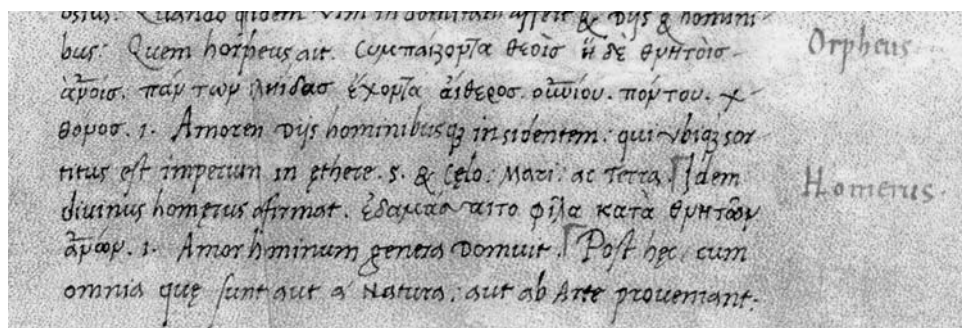 Quando qidem vim indomitam affert & Dijs & homini-
bus: Quem horpheus ait. Συμπαίζοντα θεοῖσ ἠ δὲ θνητοῖσ Orpheus
ἀν̅οισ. πάντων κληίδασ ἔχοντα αἰθεροσ. οὐν̅ίου. πόντου. χ-
θονοσ. 1. Amorem Dijs hominibusqꝫ insidentem: qui vbiqꝫ sor
titus est imperium in ęthere. s. & Cęlo. Mari. ac Terra. Idem
diuinus homęrus afirmat. ἐδαμάσαιτο φῖλα κατὰ θνητῶν Homerus.
ἀν̅ων. 1. Amor hminum genera Domuit. Post hęc cum
omnia quę sunt aut a Natura. aut ab Arte proueniant.